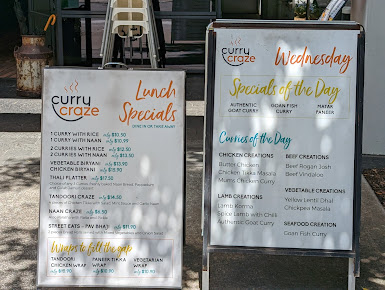 curry
craze
Lunch
Specials
DINE IN OR TAKE AWAY
1 CURRY WITH RICE only $10.50
1 CURRY WITH NAAN only $10.99
2 CURRIES WITH RICE only $12.50
2 CURRIES WITH NAAN only $13.50
VEGETABLE BIRYANI only $12.90
CHICKEN BIRYANI only $13.90
THALI PLATTER only $17.50
TANDOORI CRAZE only $14.50
NAAN CRAZE only $6.50
STREET EATS - PAV BHAJI only $11.90
Wraps to fill the gap
TANDOORI
CHICKEN WRAP
only $10.90
PANEER TIKKA
WRAP
only $10.90
VEGETARIAN
WRAP
only $10.90
curry
craze
Wednesday
Specials of the Day
AUTHENTIC
GOAT CURRY
GOAN FISH
CURRY
MATAR
PANEER
Curries of the Day
CHICKEN CREATIONS
Butter Chicken
Chicken Tikka Masala
Mums Chicken Curry
LAMB CREATIONS
Lamb Korma
Spice Lamb with Chilli
Authentic Goat Curry
BEEF CREATIONS
Beef Rogan Josh
Beef Vindaloo
VEGETABLE CREATIONS
Yellow Lentil Dhal
Chickpea Masala
SEAFOOD CREATION
Goan Fish Curry